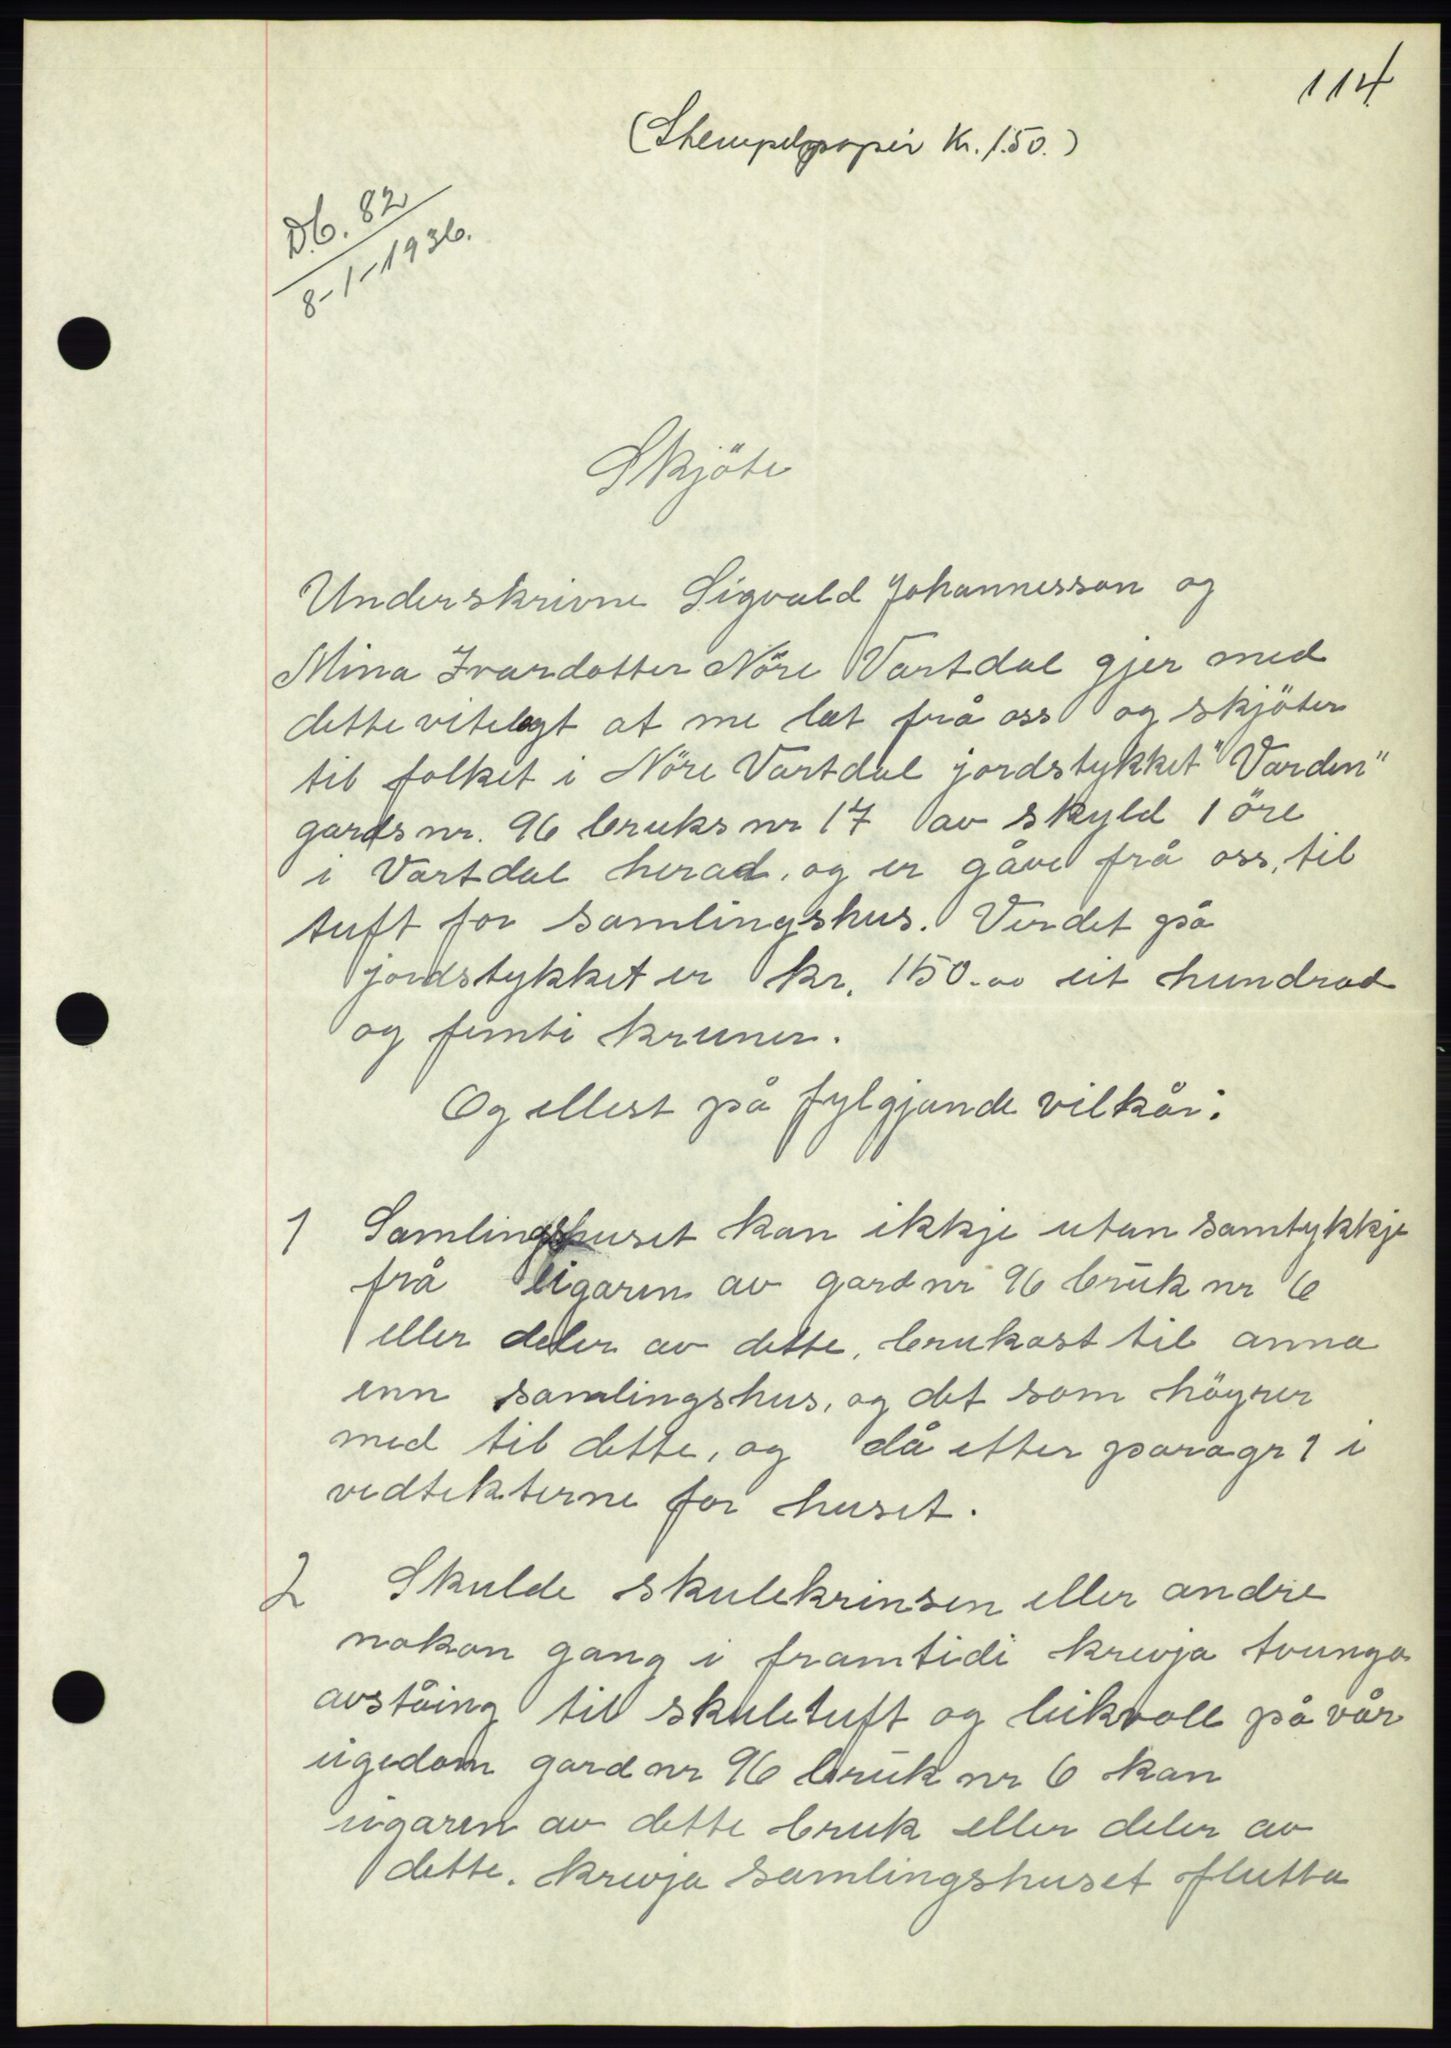 114
(Stempelpapir kr. 1.50.)
D.b. 82
8-1-1936.
Skjöte
Underskrivne Sigvald Johannesson og
Mina Ivardotter Nöre Vartdal gjer med
dette vitelegt at me lat frå oss og skjöter
til folket i Nöre Vartdal jordstykket "Varden"
gards nr. 96 bruks nr 17 av skyld 1 öre
i Vartdal herad, og er gåve frå oss, til
tuft for samlingshus. Verdet på
jordstykket er kr. 150.00 eit hundrad
og femti kruner.
Og ellest på fylgjande vilkår:
1 Samlingshuset kan ikkje utan samtykkje
frå eigaren av gard nr 96 bruk nr 6
eller deler av dette, brukast til anna
enn samlingshus, og det som höyrer
med til dette, og då etter paragr 1 i
vedtekterne for huset.
2 Skulde skulekrinsen eller andre
nokon gang i framtidi krevja tvunga
avståing til skuletuft og leikvoll på vår
eigedom gard nr 96 bruk nr 6 kan
eigaren av dette bruk eller deler av
dette. krevja samlingshuset flutta